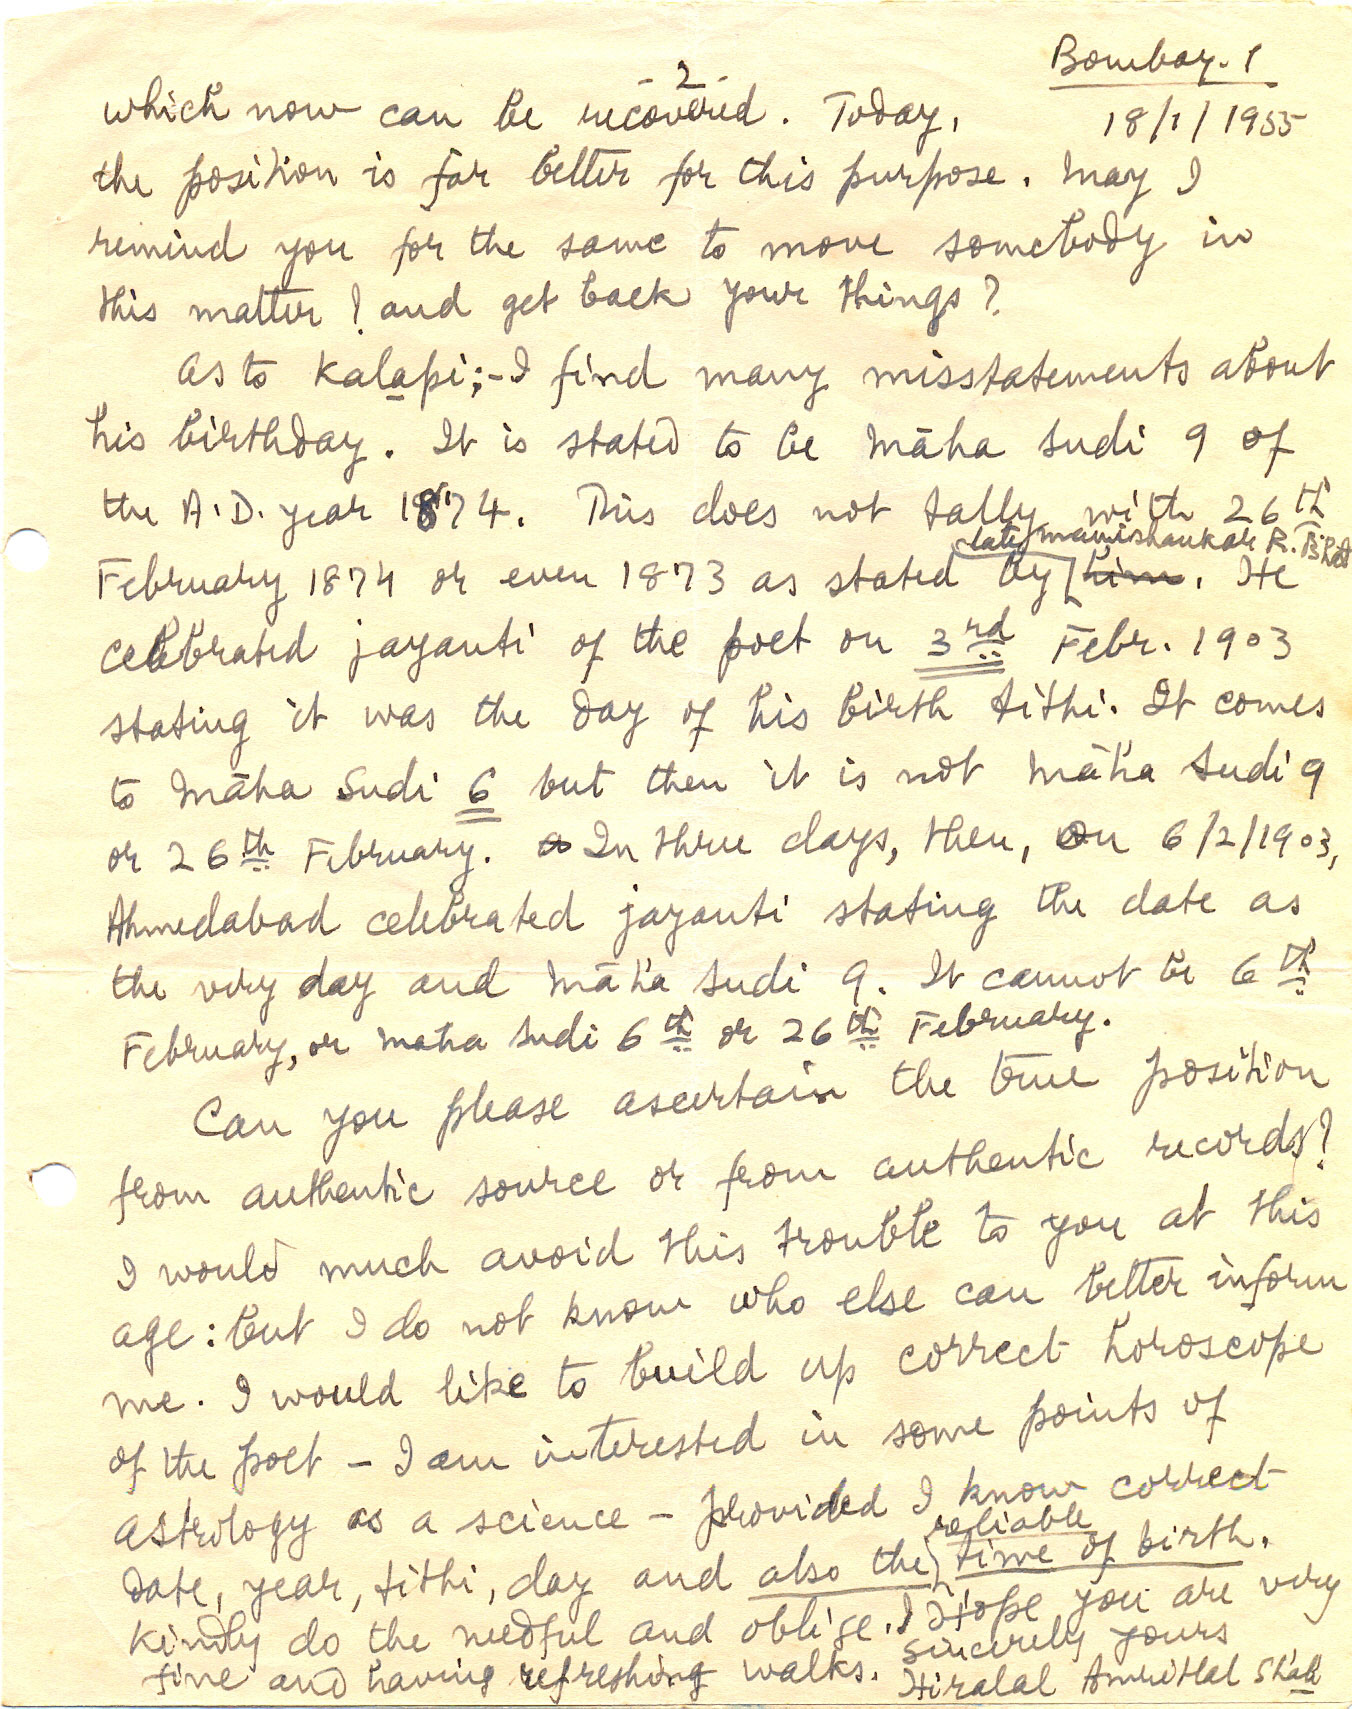 - 2 -
Bombay. 1
18/1/1955
which now can be recovered. Today,
the position is far better for this purpose. May I
remind you for the same to move somebody in
this matter! and get back your things?
As to Kalapi;- I find many misstatements about
his birthday. It is stated to be Māha Sudi 9 of
the A.D. year 1874. This does not tally with 26th
late Manishankar R. Bhatt
February 1874 or even 1873 as stated by him. He
celebrated jayanti of the poet on 3rd Febr. 1903
stating it was the day of his birth tithi. It comes
to Māha Sudi 6 but then it is not Māha Sudi 9
or 26th February. In three days, then, on 6/2/1903,
Ahmedabad celebrated jayanti stating the date as
the very day and Māha Sudi 9. It cannot be 6th
February, or Maha Sudi 6th or 26th February.
Can you please ascertain the true position
from authentic source or from authentic records?
I would much avoid this trouble to you at this
age: but I do not know who else can better inform
me. I would like to build up correct horoscope
of the poet - I am interested in some points of
astrology as a science - provided I know correct
reliable
date, year, tithi, day and also the time of birth.
Kindly do the needful and oblige. I Hope you are very
fine and having refreshing walks.
Sincerely yours
Hiralal Amritlal Shah